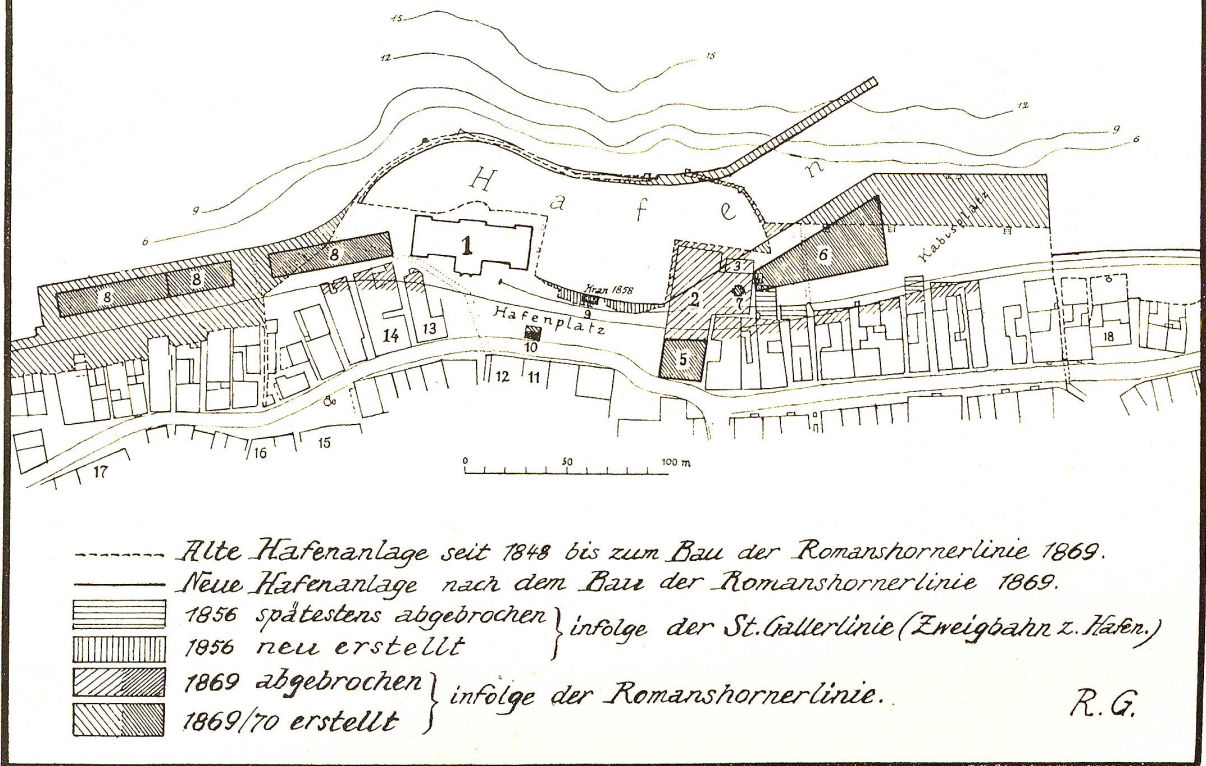 15
15
12
12
9
6
9
6
H a f e n
Kabisplatz
1
2
3
6
7
8
8
8
Kran 1856
9
Hafenplatz
10
5
14
13
12
11
18
15
16
17
0 50 100 m
Alte Hafenanlage seit 1848 bis zum Bau der Romanshornerlinie 1869.
Neue Hafenanlage nach dem Bau der Romanshornerlinie 1869.
1856 spätestens abgebrochen
1856 neu erstellt
infolge der St.Gallerlinie (Zweigbahn z. Hafen.)
1869 abgebrochen
1869/70 erstellt
infolge der Romanshornerlinie.
R.G.